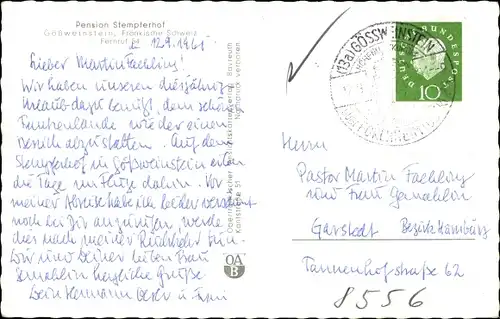 Pension Stempferhof
Gößweinstein, Fränkische Schweiz
Fernruf 64
12.9.1961
Lieber Martin Faehling!
Wir haben unseren diesjährigen
Urlaub dazu benutzt, dem schönen
Frankenlande wieder einen
Besuch abzustatten. Auf dem
Stempferhof in Gößweinstein eilen
die Tage im Fluge dahin. Vor
meiner Abreise habe ich leider versäumt
noch bei Dir anzurufen, werde
dies nach meiner Rückkehr tun.
Dir und Deiner lieben Frau
Gemahlin herzliche Grüße
Dein Hermann u. Frau
Oberfränkischer Ansichtskartenverlag Bayreuth
Karlstraße 31 Nachdruck verboten
OA
B
(13a) GÖSSWEINSTEIN
DEUTSCHE BUNDESPOST
10
Herrn
Pastor Martin Faehling
und Frau Gemahlin
Garstedt Bezirk Hamburg
Tannenhofstraße 62
8556